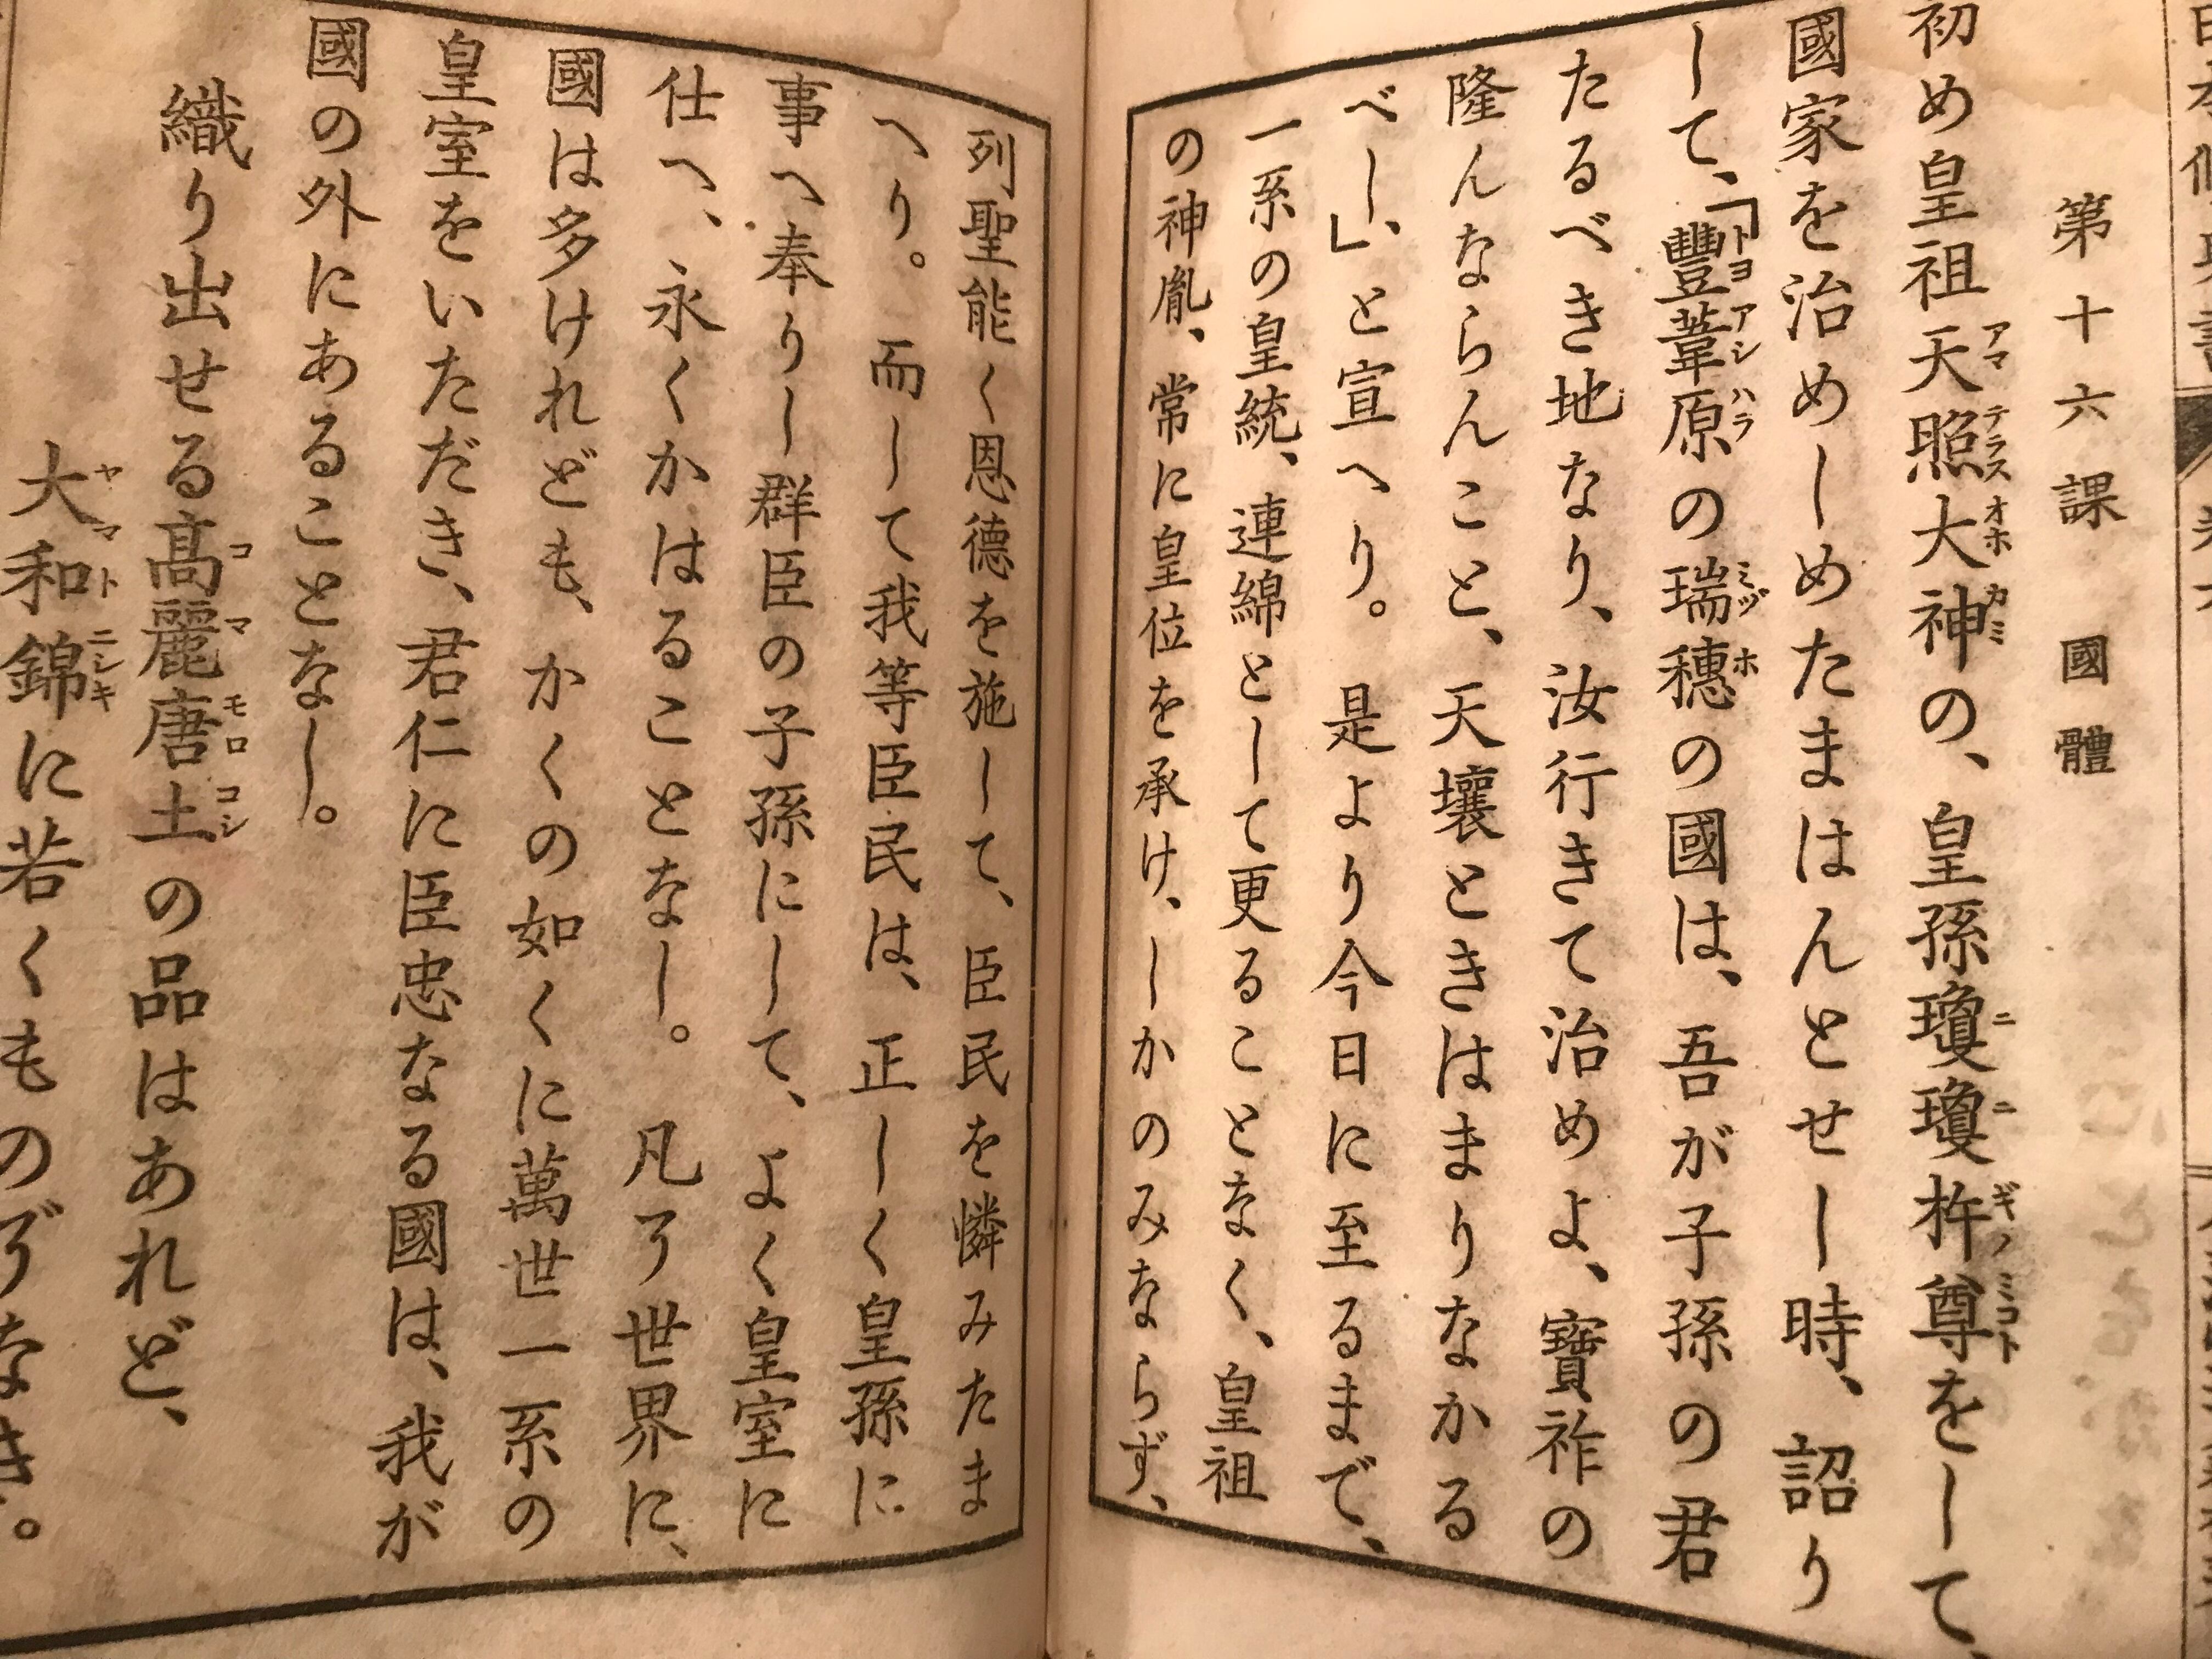 第十六課　國體
初め皇祖天照大神の、皇孫瓊瓊杵尊をして、
國家を治めしめたまはんとせし時、詔り
して、「豐葦原の瑞穗の國は、吾が子孫の君
たるべき地なり、汝行きて治めよ、寶祚の
隆んならんこと、天壤ときはまりなかる
べし、」と宣へり。是より今日に至るまで、
一系の皇統、連綿として更ることなく、皇祖
の神胤、常に皇位を承け、しかのみならず、
列聖能く恩德を施して、臣民を憐みたま
へり。而して我等臣民は、正しく皇孫に
事へ奉りし群臣の子孫にして、よく皇室に
仕へ、永くかはることなし。凡そ世界に、
國は多けれども、かくの如くに萬世一系の
皇室をいただき、君仁に臣忠なる國は、我が
國の外にあることなし。
織り出せる高麗唐土の品はあれど、
大和錦に若くものぞなき。